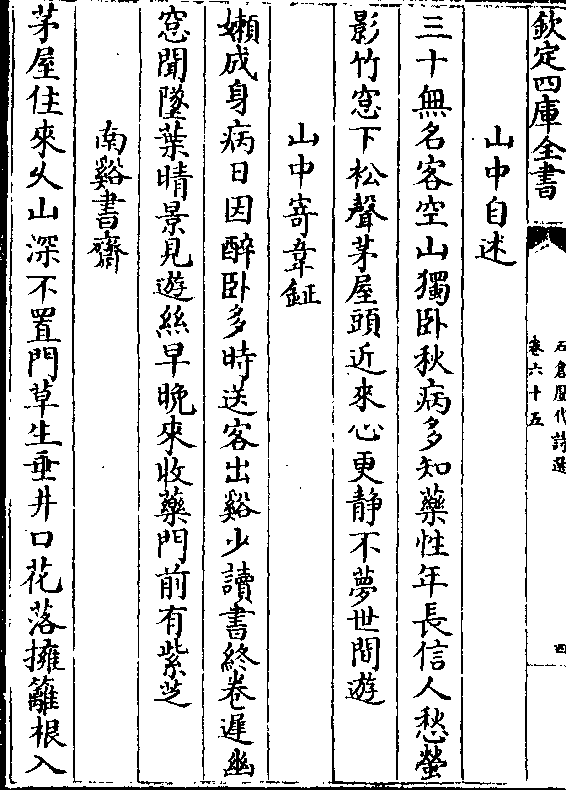 欽定四庫全書
石倉歷代詩選
卷六十五
四
山中自述
三十無名客空山獨卧秋病多知藥性年長信人愁螢
影竹窓下松聲茅屋頭近來心更静不夢世間遊
山中寄韋鉦
嬾成身病日因醉卧多時送客出谿少讀書終卷遲幽
窓聞墜葉晴景見遊絲早晚來收藥門前有紫芝
南谿書齋
茅屋住來久山深不置門草生垂井口花落擁籬根入